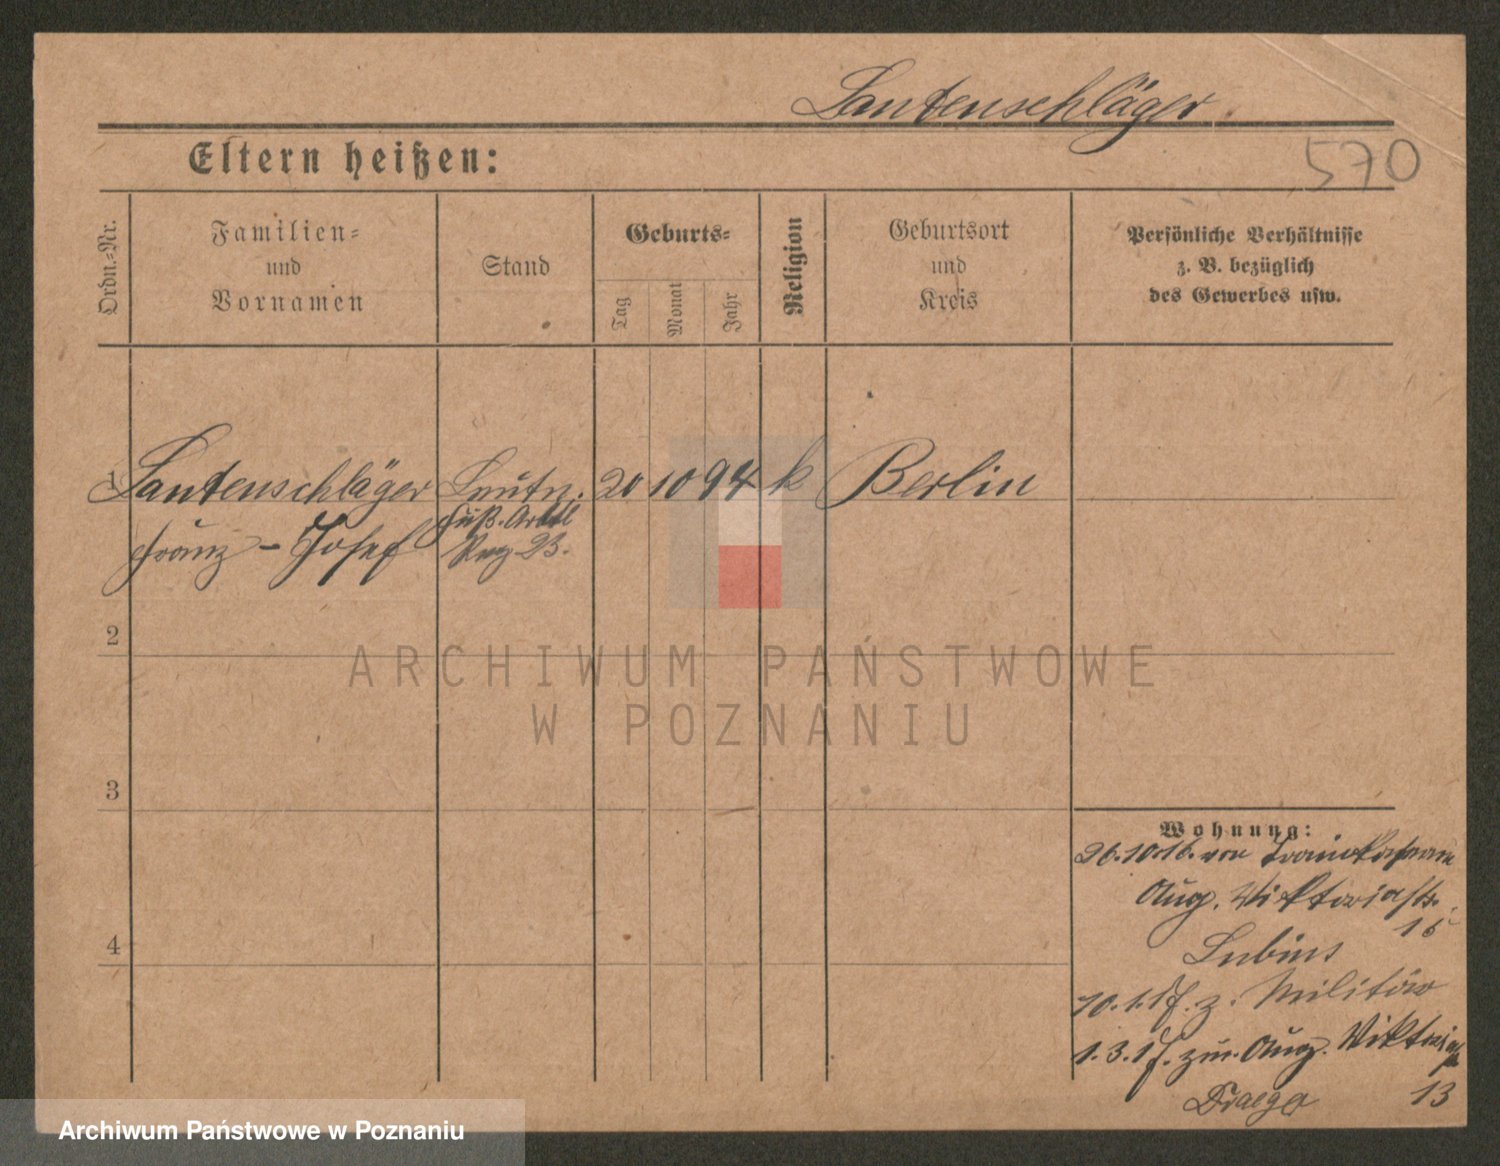 Lautenschläger
570
Eltern heißen:
Ordn.-Nr.
Familien-
und
Vornamen
Stand
Geburts-
Tag
Monat
Jahr
Religion
Geburtsort
und
Kreis
Persönliche Verhältnisse
z. B. bezüglich
des Gewerbes usw.
1 Lautenschläger Leutn. 20 10 94 k Berlin
Franz - Josef Fuß. Artll
Reg 23.
2
3
4
Wohnung:
26.10.16. von
Aug. Viktoriastr.
15
Lubins
10.1.17. z. Militär
1.3.17. zur. Aug. Viktoriastr
Draeger 13
ARCHIWUM PAŃSTWOWE
W POZNANIU
Archiwum Państwowe w Poznaniu